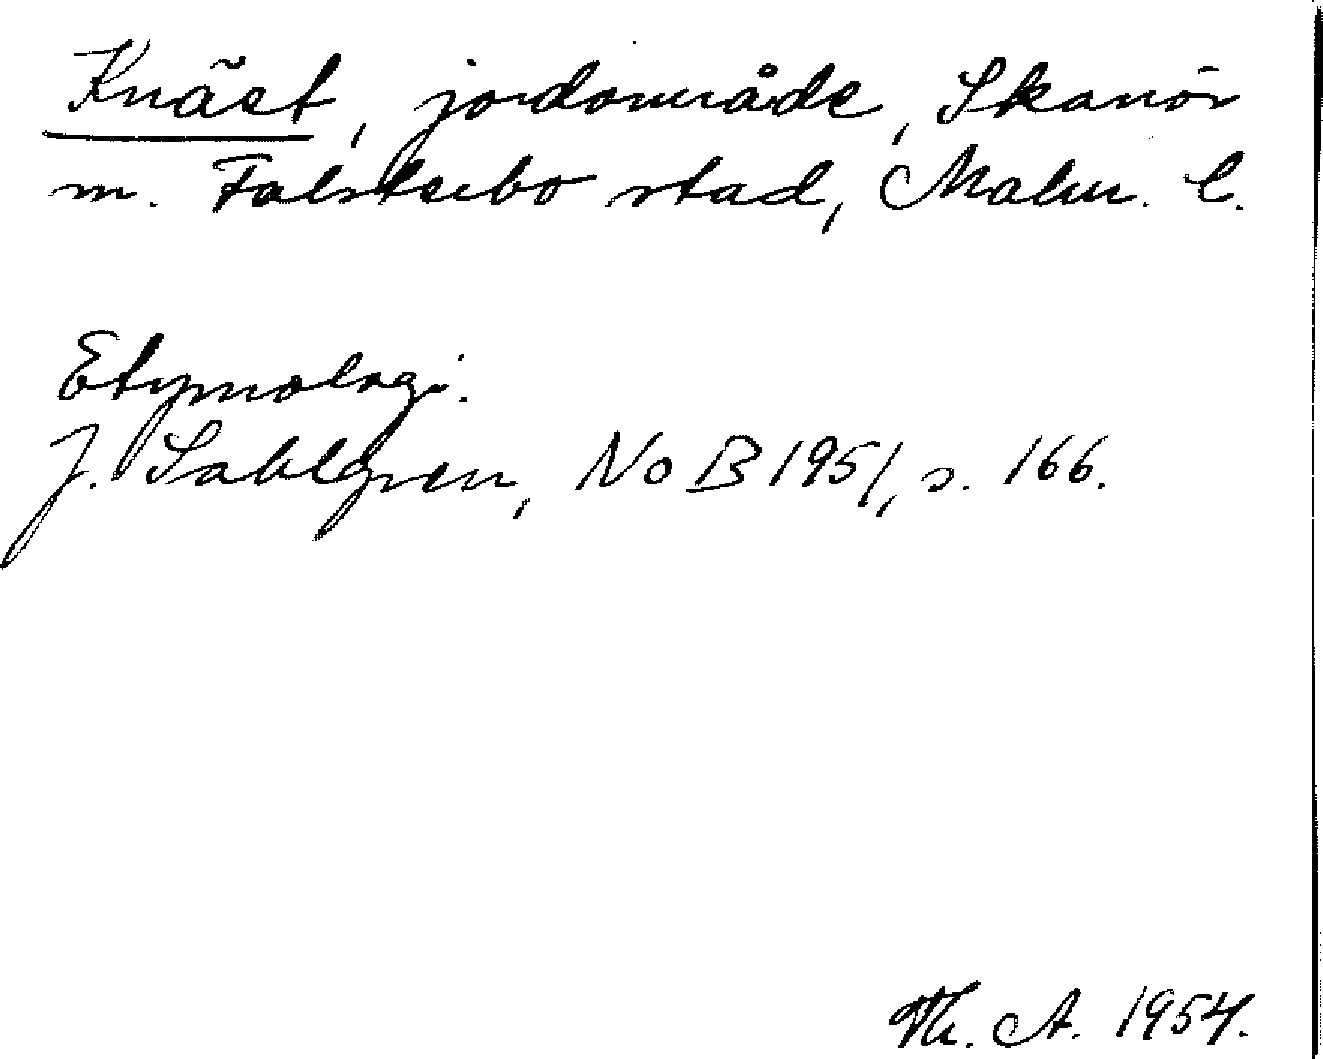 Knäet, jordområde, Skanör
m. Falsterbo stad, Malm. l.
Etymologi.
J. Sahlgren, NoB 1951, s. 166.
Th. A. 1954.